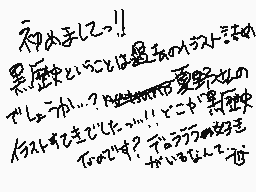 初めましてっ!!
黒歴史ということは過去のイラスト詰め
でしょうか…? 夏野さんの
イラストすてきでしたっ…!! どこか黒歴史
なのです? デュラララの女子を
がいるなんて…